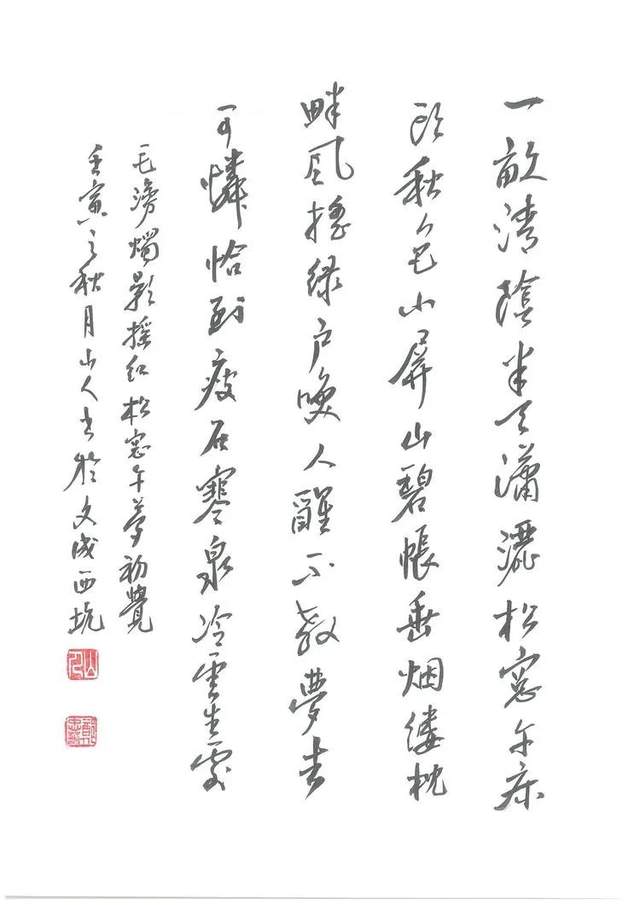 一畝清陰半天瀟灑松窓午床
頭秋色小屏山碧帳垂烟縷枕
畔風搖綠戶喚人醒不教夢去
可憐恰到瘦石寒泉冷雲生處
毛滂燭影搖紅松窓午夢初覺
壬寅之秋月山人書於文成西坑
山人